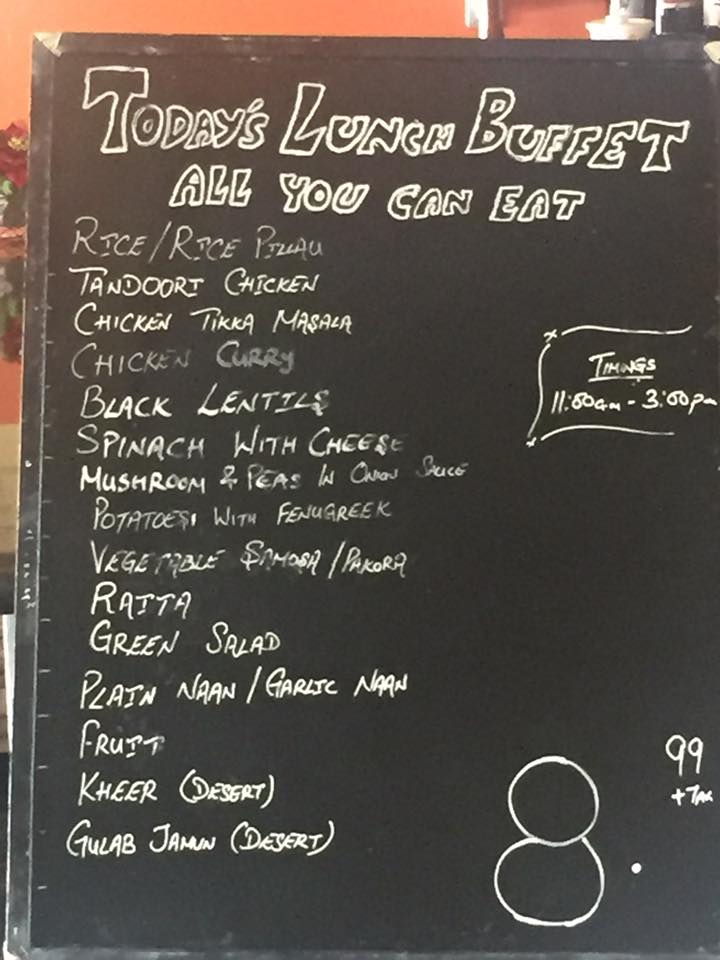 TODAY'S LUNCH BUFFET
ALL YOU CAN EAT
RICE/RICE PILLAU
TANDOORI CHICKEN
CHICKEN TIKKA MASALA
CHICKEN CURRY
BLACK LENTILS
SPINACH WITH CHEESE
MUSHROOM & PEAS IN ONION SAUCE
POTATOES WITH FENUGREEK
VEGETABLE SAMOSA/PAKORA
RAITA
GREEN SALAD
PLAIN NAAN/GARLIC NAAN
FRUIT
KHEER (DESERT)
GULAB JAMUN (DESERT)
TIMINGS
11:00am - 3:00pm
8.99
+TAX